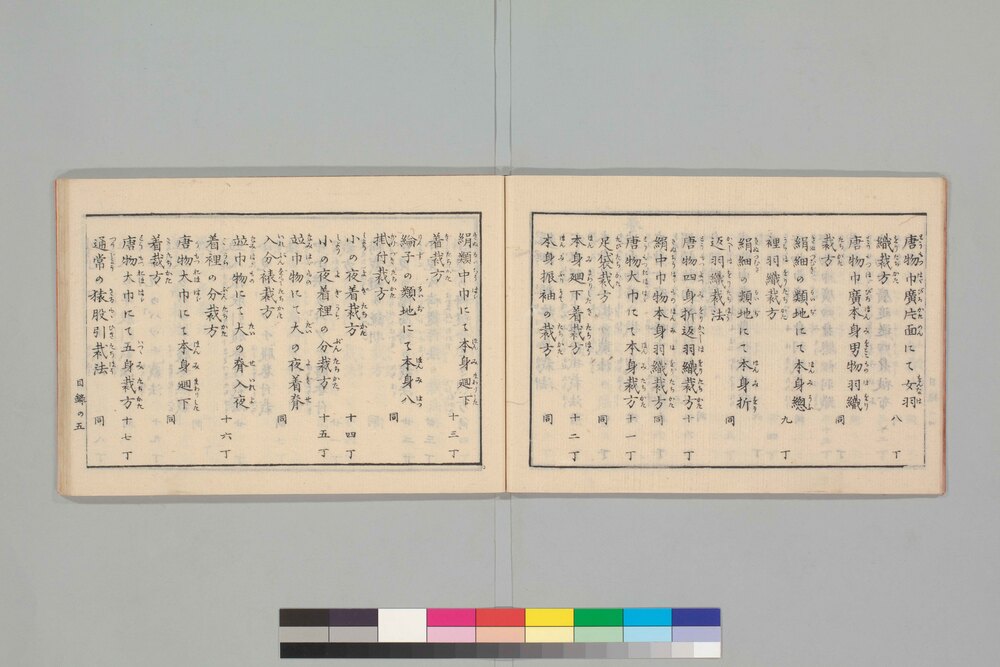 唐物巾廣片面にて女羽
織裁方 八丁
唐物巾廣本身男物羽織
裁方 同
絹細の類地にて本身總
裡羽織裁方 九丁
絹細の類地にて本身折
返羽織裁法 同
唐物四身折返羽織裁方 十丁
絹中巾物本身羽織裁方 同
唐物大巾にて本身裁方 十一丁
足袋裁方 同
本身廻下着裁方 十二丁
本身振袖の裁方 同
絹類中巾にて本身廻下
着裁方 十三丁
綸子の類地にて本身八
掛付裁方 同
小の夜着裁方 十四丁
小の夜着裡の分裁方 十五丁
並巾物にて大の夜着脊
入分裱裁方 同
並巾物にて大の脊入夜
着裡の分裁方 十六丁
唐物大巾にて本身廻下
着裁方 同
唐物大巾にて五身裁方 十七丁
通常の猿股引裁法 同
目録の五